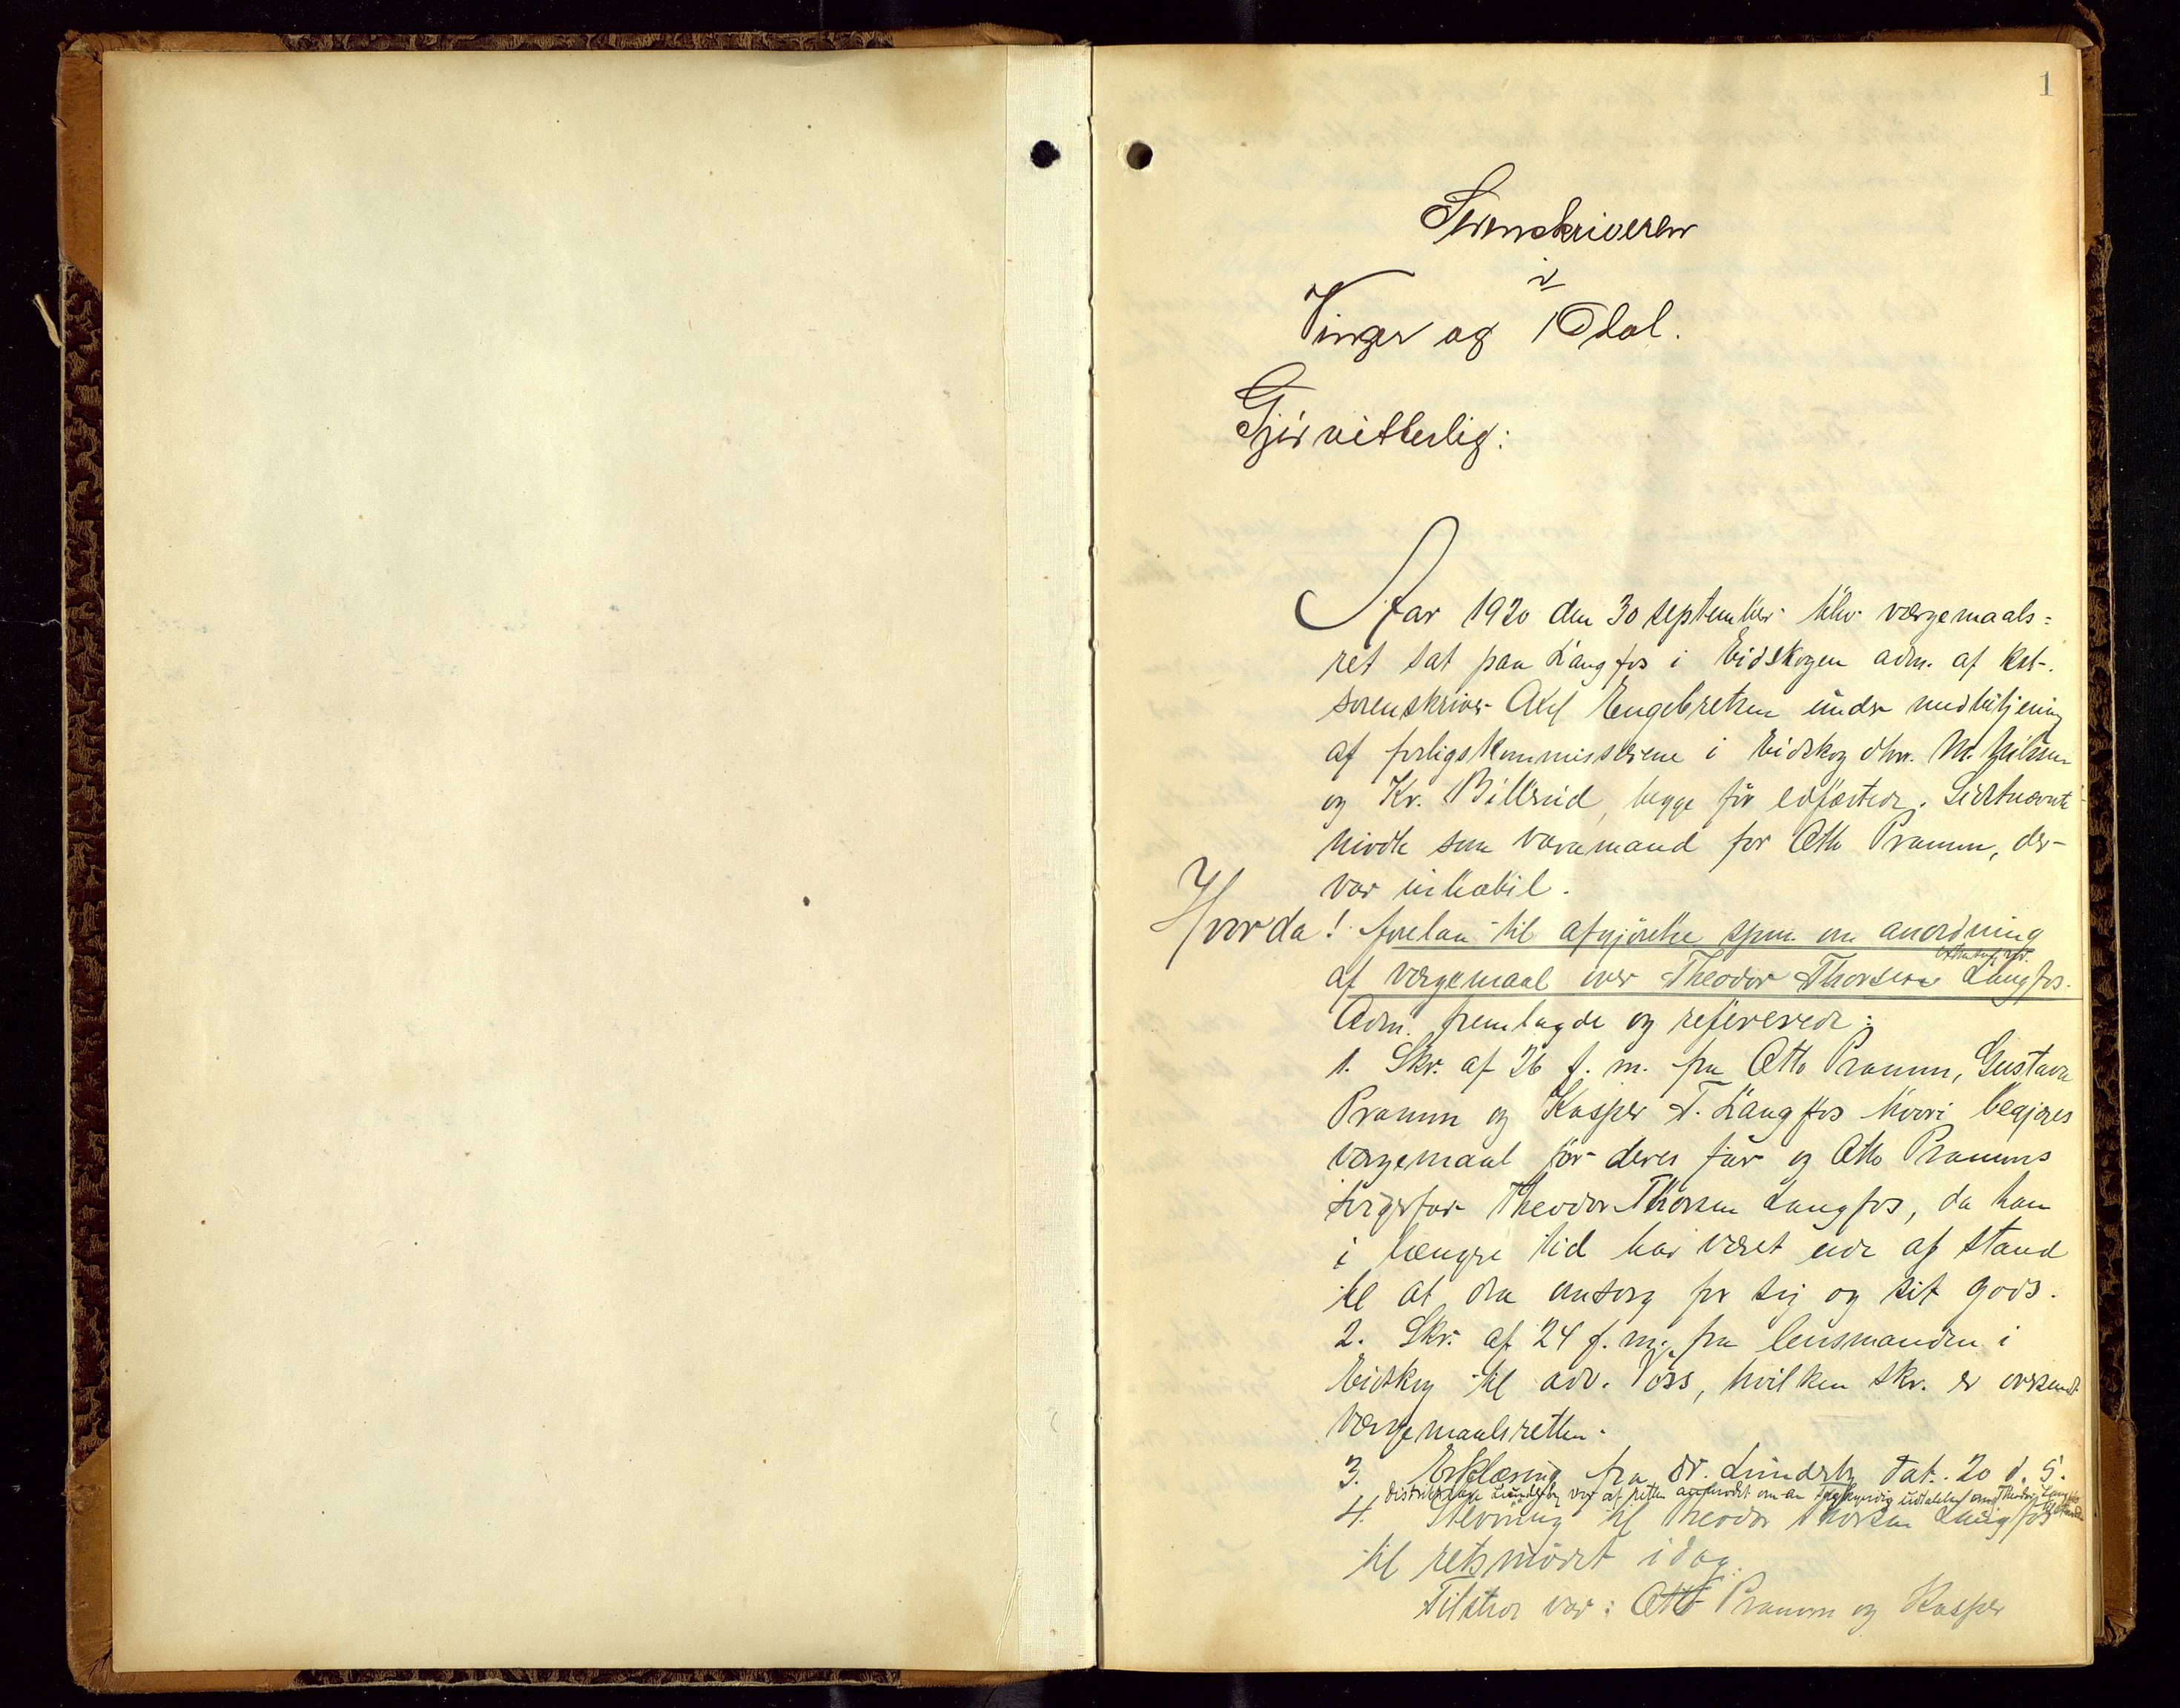 1
Sorenskriveren
i
Vinger og Odal.
Gjør vitterlig:
Aar 1920 den 30 september blev værgemaals-
ret sat paa Langfos i Eidskogen adm. af kst.
sorenskriver Axel Engebretsen under medbetjening
af forligskommissærene i Eidskog dhrr. M. Nilsen
og Kr. Billerud, begge før edfæstede. Sidstnævnte
mødte som varamand for Otto Pramm, der
var inhabil.
Hvorda! forelaa til afgjørelse spm. om anordning
af værgemaal over Theodor Thorsen Langfos.
Adm. fremlagde og refererede:
1. Skr. af 26 f. m. fra Otto Pramm, Gustava
Pramm og Kasper T. Langfos hvori begjæres
værgemaal for deres far og Otto Pramms
svigerfar Theodor Thorsen Langfos, da han
i længre tid har været ude af stand
til at dra omsorg for sig og sit gods.
2. Skr. af 24 f. m. fra lensmanden i
Eidskog til adv. Voss, hvilken skr. er oversendt
værgemaalsretten.
3. Erklæring fra dr. Lunderby dat. 20 d. s.
distriktslæge Lunderby var af retten anmodet om en sagkyndig udtalelse ang. Theodor Langfos
4. Stevning til Theodor Thorsen Langfos
til retsmødet idag.
Tilstede var: Otto Pramm og Kasper